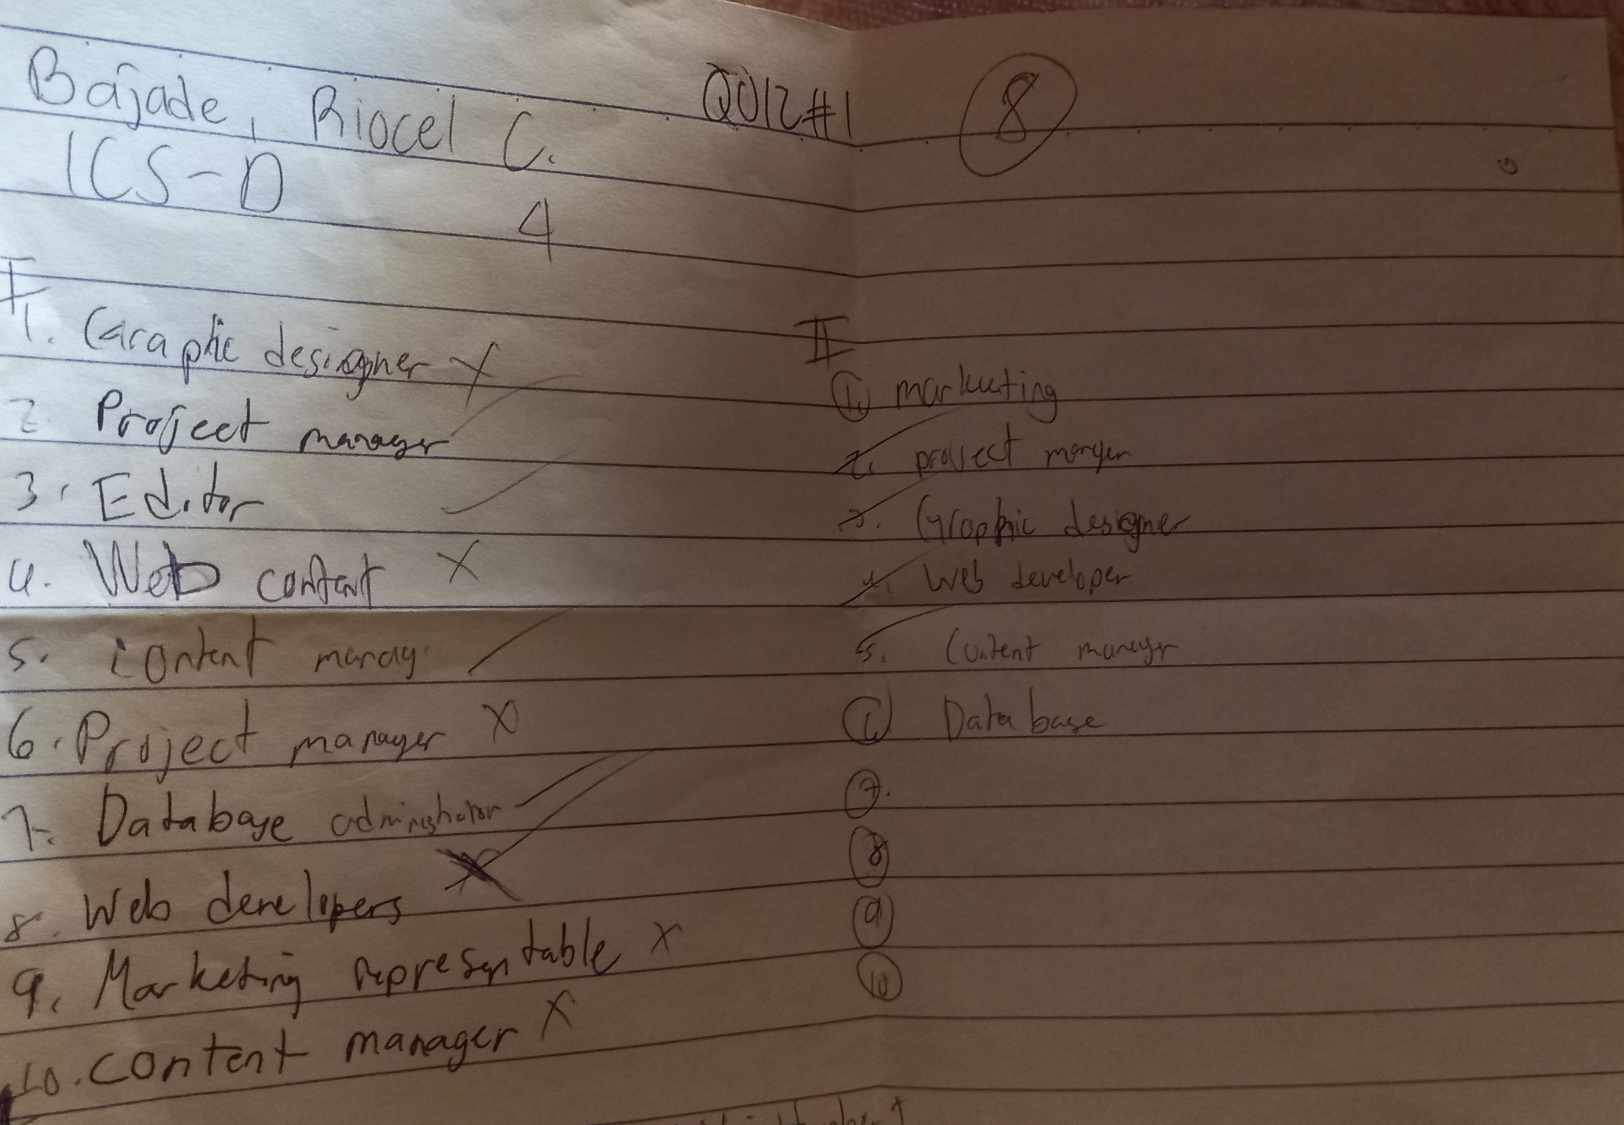 Bajade, Riocel C.
QUIZ#1
8
ICS-D
4
I
1. Graphic designer X
2 Project manager
3. Editor
4. Web content X
5. content manag
6. Project manager X
7. Database administrator
8. Web developers
9. Marketing representable X
10. content manager X
II
1. marketing
2. project manger
3. Graphic designer
4. Web developer
5. Content manager
6 Data base
7.
8
9
10